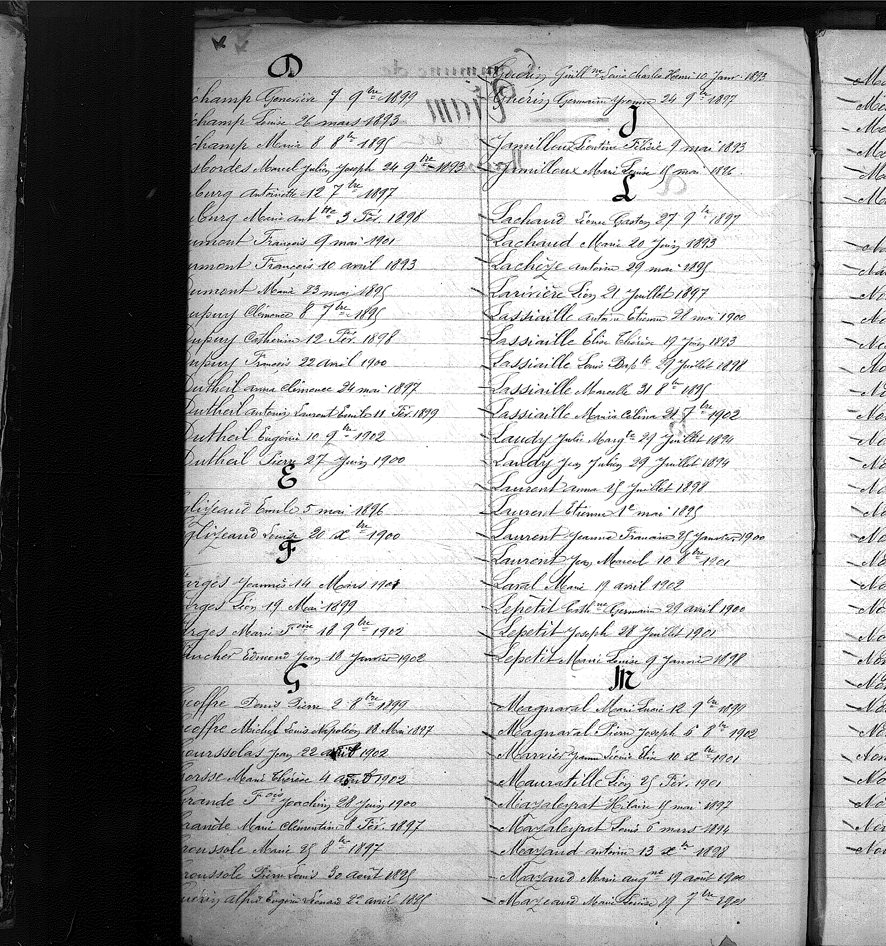 D
champ Geneviève 7 9bre 1899
champ Louise 26 mars 1893
champ Marie 8 8bre 1895
sbordes Marcel Julien Joseph 24 9bre 1893
burg Antoinette 12 7bre 1897
burg Marie Antte 3 Fév. 1898
umont François 9 mai 1901
umont François 10 avril 1893
Dumont Marie 23 mai 1895
Dupuy Clémence 8 7bre 1895
Dupuy Catherine 12 Fév. 1898
Dupuy François 22 avril 1900
Dutheil Anna Clémence 24 mai 1897
Dutheil Antonin Laurent Emile 11 Fév. 1899
Dutheil Eugénie 10 9bre 1902
Dutheil Pierre 27 Juin 1900
E
glizeaud Emile 5 mai 1896
glizeaud Louise 20 Xbre 1900
F
arges Jeannès 14 Mars 1901
arges Léon 19 Mai 1899
arges Marie Foise 18 9bre 1902
aucher Edmond Jean 18 Janvier 1902
G
eoffre Denis Pierre 2 8bre 1899
eoffre Michel Louis Napoléon 18 Mai 1897
oursolas Jean 22 avril 1902
orsse Marie Thérèse 4 1902
rande Fois Joachim 28 Juin 1900
rande Marie Clémentine 8 Fév. 1897
roussole Marie 25 8bre 1897
roussole Pierre Louis 30 août 1895
uérin Alfred Eugène Léonard 22 avril 1895
Guérin Guillne Louis Charles Henri 10 Janv. 1893
Guérin Germain Yvonne 24 9bre 1897
J
Jamilloux Léontine Félicie 9 mai 1893
Jamilloux Marie Louise 15 mai 1896
L
Lachaud Léonce Gaston 27 9bre 1897
Lachaud Marie 20 Juin 1893
Lachèze Antoine 29 mai 1895
Larivière Léon 21 Juillet 1897
Lassiaille Antoine Etienne 28 mai 1900
Lassiaille Elise Thérèse 19 Juin 1893
Lassiaille Louis Bapte 29 Juillet 1898
Lassiaille Marcelle 31 8bre 1895
Lassiaille Maria Célina 21 7bre 1902
Laudy Julie Margte 29 Juillet 1894
Laudy Jean Julien 29 Juillet 1894
Laurent Anna 15 Juillet 1898
Laurent Etienne 1er mai 1895
Laurent Jeanne 25 Janvier 1900
Laurent Jean Marcel 10 8bre 1901
Laval Marie 19 avril 1902
Lepetit Cathne Germain 29 avril 1900
Lepetit Joseph 28 Juillet 1901
Lepetit Marie Louise 9 Janvier 1898
M
Magnaval Marie Lucie 12 9bre 1899
Magnaval Pierre Joseph 6 8bre 1902
Marvier Jeanne Elia 10 Xbre 1901
Mauratille Léon 25 Fév. 1901
Mazaleyrat Hilaire 15 mai 1897
Mazaleyrat Louis 6 mars 1894
Mazaud Antoine 13 Xbre 1898
Mazaud Marie Augne 19 août 1900
Mazeaud Marie Louise 19 7bre 1901